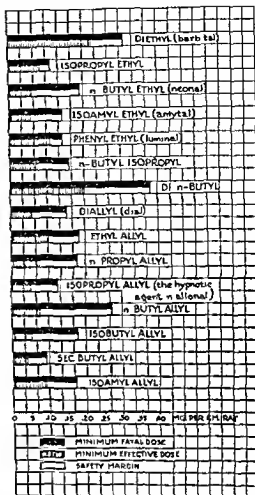 DIETHYL (barbital)
ISOPROPYL ETHYL
n BUTYL ETHYL (neonal)
ISOAMYL ETHYL (amytal)
PHENYL ETHYL (luminal)
n-BUTYL ISOPROPYL
DI n-BUTYL
DIALLYL (dial)
ETHYL ALLYL
n PROPYL ALLYL
ISOPROPYL ALLYL (the hypnotic
agent n allonal)
n BUTYL ALLYL
ISOBUTYL ALLYL
SEC BUTYL ALLYL
ISOAMYL ALLYL
0 5 10 15 20 25 30 35 40 MG PER GM. RAT
MINIMUM FATAL DOSE
MINIMUM EFFECTIVE DOSE
SAFETY MARGIN